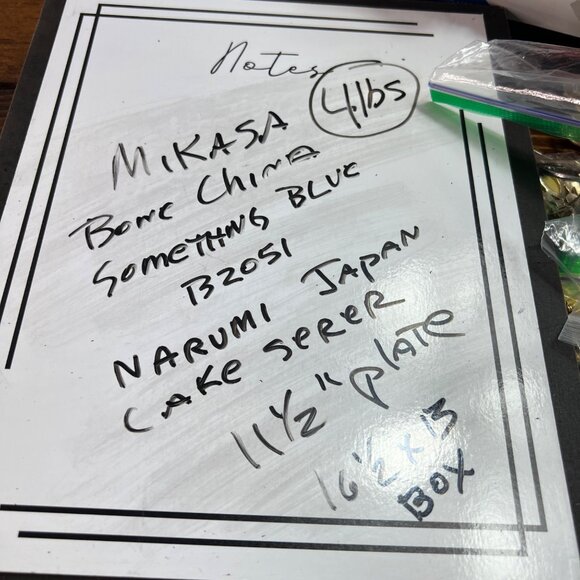 Notes
4.lbs
MIKASA
BONE CHINA
SOMETHING BLUE
B2051
NARUMI JAPAN
CAKE SERER
11 1/2" PLATE
16 1/2 x 13
BOX